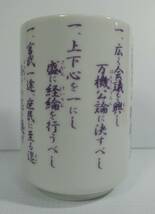 一、広く会議を興し
万機公論に決すべし
一、上下心を一にし
盛に経綸を行うべし
一、官武一途庶民に至る迄